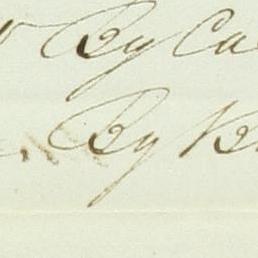 By Ca
By B